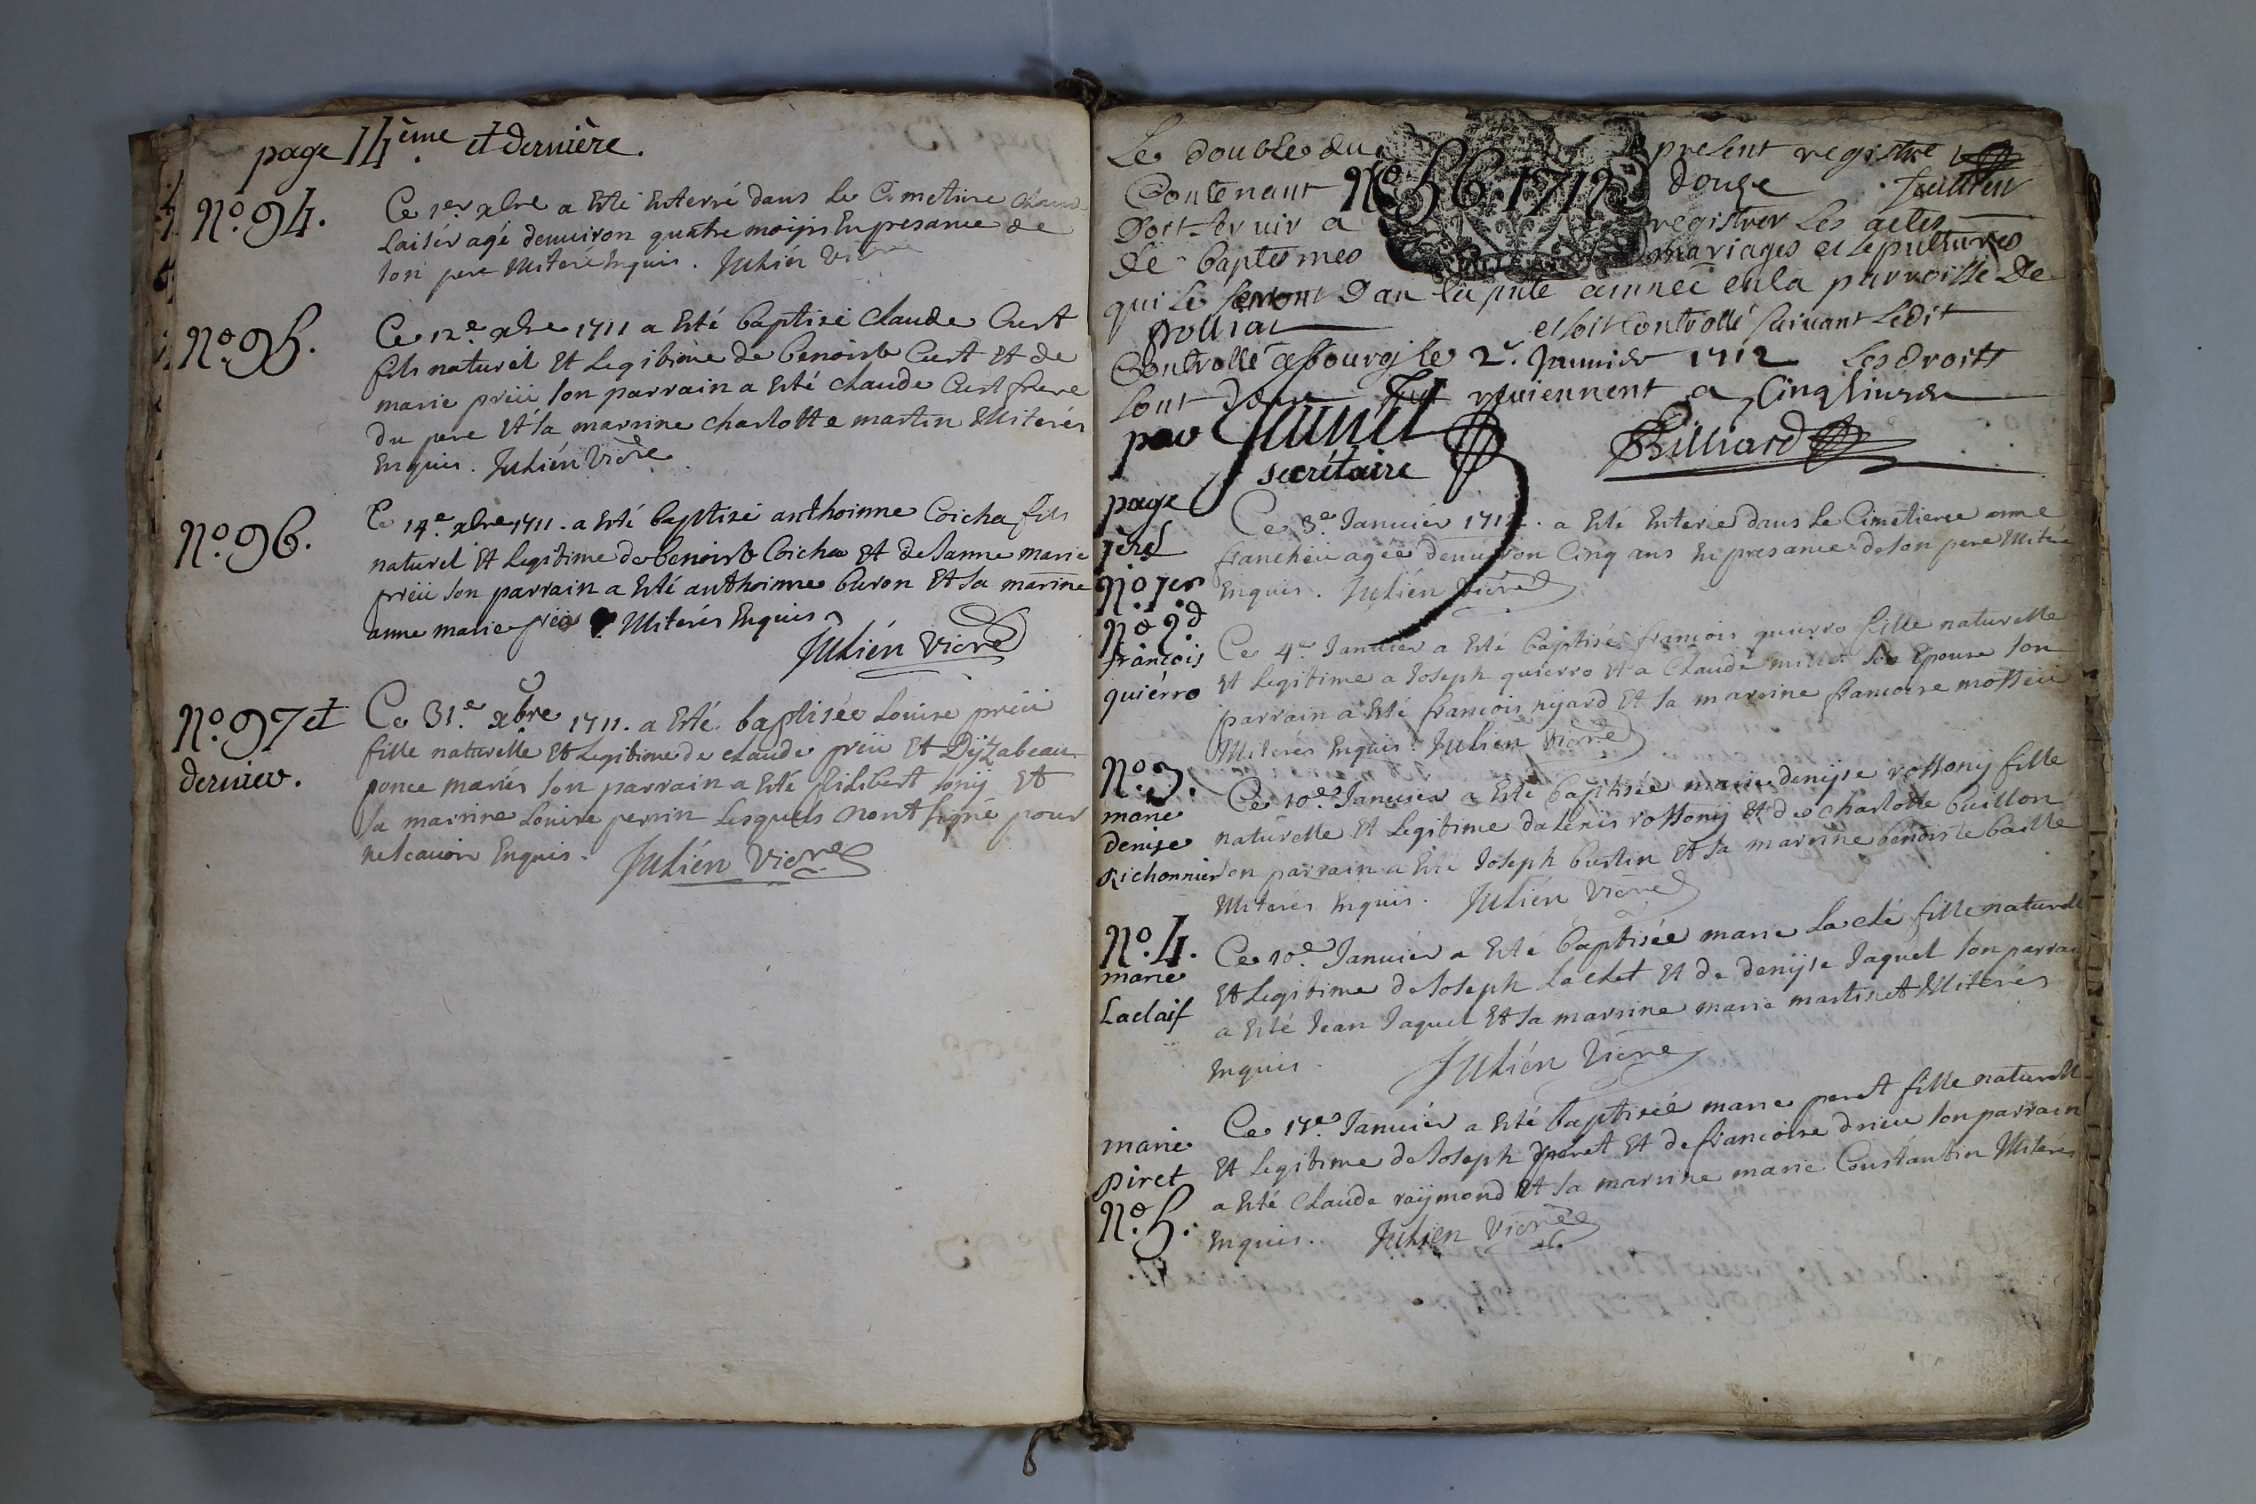 page 14ème et dernière.
N.º 94.
Ce 1er xbre a Esté Enterré dans Le Cimetiere
Laisér agé denuiron quatre moijs En presance de
son pere Miteré Enquis. Julién Vicre
N.º 95.
Ce 12.e xbre 1711 a Esté baptisé Claude Curt
fils naturel Et Legitime de benoist Curt Et de
marie priü son parrain a Esté Claude Curt frere
du pere Et sa marrine charlotte martin Miterés
Enquis. Julién Vicre
N.º 96.
Ce 14.e xbre 1711. a Esté baptisé anthoinne Coicha fils
naturel Et Legitime de benoist Coicha Et de Janne marie
priü son parrain a Esté anthoinne buron Et sa marine
anne marie Miterés Enquis
Julién Vicre
N.º 97 et
dernier.
Ce 31.e xbre 1711. a Esté baptisée Louise priü
fille naturelle Et Legitime de claude priü Et Dijzabeau
ponce mariés son parrain a Esté filibert sonij Et
sa marrine Louise perrin Lesquels nont signé pour
ne scauoir Enquis. Julién Vicre
Le double du present registre
Contenant douze
N.º 56. 1712
Doit seruir a registrer Les actes
de baptesmes mariages et sepultures
qui se feront Dan la pnte année en la parroisse De
et soit Controllé suivant Ledit
Controllé a bourg le 2.e Januier 1712 Les droits
sont reuiennent a Cinq liures
par
secrétaire
page
1ere
N.º 1er
Ce 3.e Januier 1712. a Esté Enterée dans Le Cimetiere anne
agée denuiron Cinq ans En presance de son pere Miteré
Enquis. Julién Vicre
N.º 2.d
françois
quiérro
Ce 4.e Januier a Esté baptisée françois quierro fille naturelle
Et Legitime a Joseph quierro Et a Claude millet son Epouse son
parrain a Esté françois nijard Et sa marrine francoise
Miterés Enquis. Julien Vicre
N.º 3.
marie
denise
Richonnier
Ce 10.e Januier a Esté baptisée marie denijse rossonij fille
naturelle Et Legitime de denis rossonij Et de charlotte buillon
son parrain a Esté Joseph bustin Et sa marrine benoiste baille
Miterés Enquis. Julién Vicre
N.º 4.
marie
Laclaif
Ce 10.e Januier a Esté baptisée marie La clé fille naturelle
Et Legitime de Joseph La clet Et de denijse Jaquet son parrain
a Esté Jean Jaquet Et sa marrine marie martinet Miterés
Enquis. Julién Vicre
marie
piret
N.º 5.
Ce 17.e Januier a Esté baptisée marie peret fille naturelle
Et Legitime de Joseph peret Et de francoise drieu son parrain
a Esté Claude raijmond Et sa marrine marie Constantin Miterés
Enquis. Julien Vicre